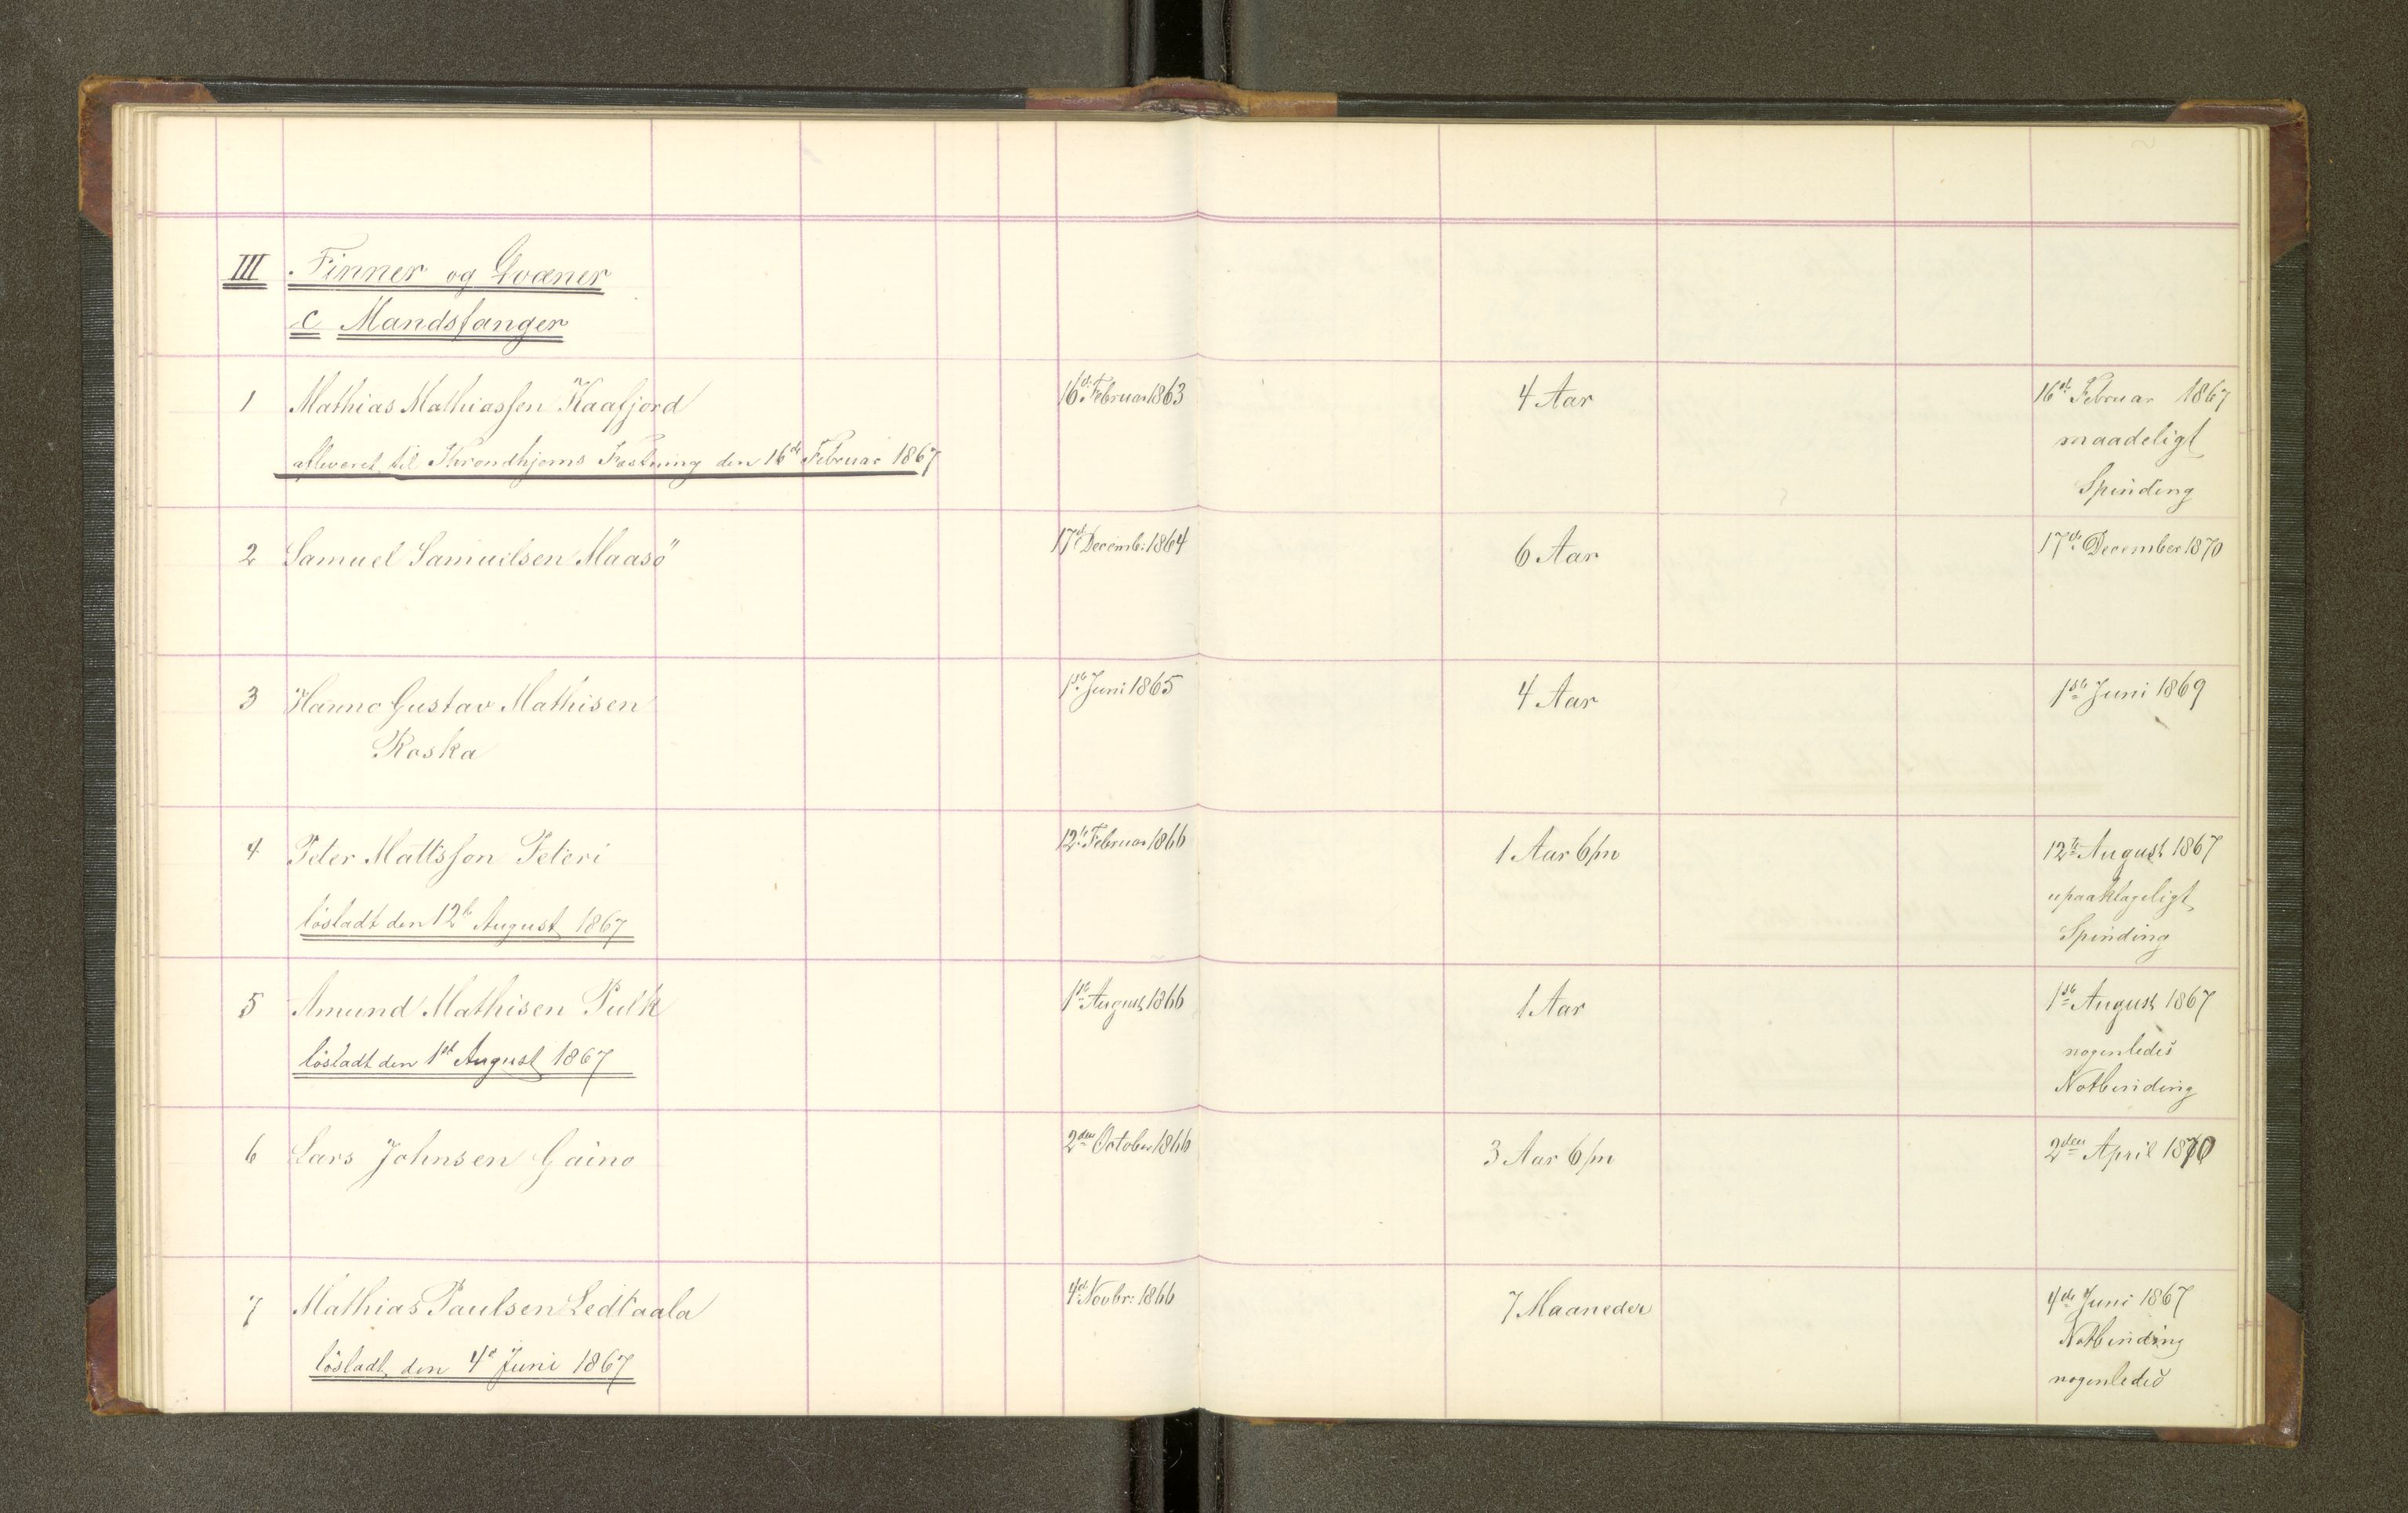 III Finner og Qvæner
c Mandsfanger
1 Mathias Mathiassen Kaafjord 16de Februar 1863 4 Aar 16de Februar 1867
afleveret til Throndhjems Fæstning den 16de Februar 1867 maadeligt
Spinding
2 Samuel Samuelsen Maasö 17de Decemb: 1864 6 Aar 17de December 1870
3 Hanno Gustav Mathisen 1ste Juni 1865 4 Aar 1ste Juni 1869
Roska
4 Peter Mattsson Peteri 12te Februar 1866 1 Aar 6/m 12te August 1867
lösladt den 12te August 1867 upaaklageligt
Spinding
5 Amund Mathisen Pulk 1ste August 1866 1 Aar 1ste August 1867
lösladt den 1st August 1867 nogenledes
Notbinding
6 Lars Johnsen Gaino 2den October 1866 3 Aar 6/m 2den April 1870
7 Mathias Paulsen Ledtaala 4de Novbr: 1866 7 Maaneder 4de Juni 1867
lösladt den 4de Juni 1867 Notbinding
nogenledes